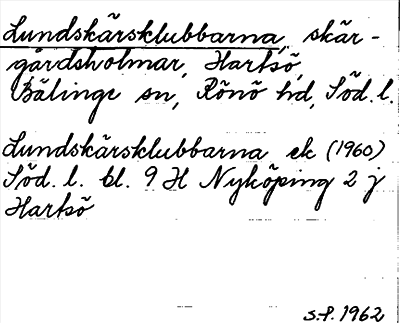 Lundskärsklubbarna, skär-
gårdsholmar, Hartsö,
Bälinge sn, Rönö hd, Söd. l.
Lundskärsklubbarna ek (1960)
Söd. l. bl. 9 H Nyköping 2 j
Hartsö
S.P. 1962